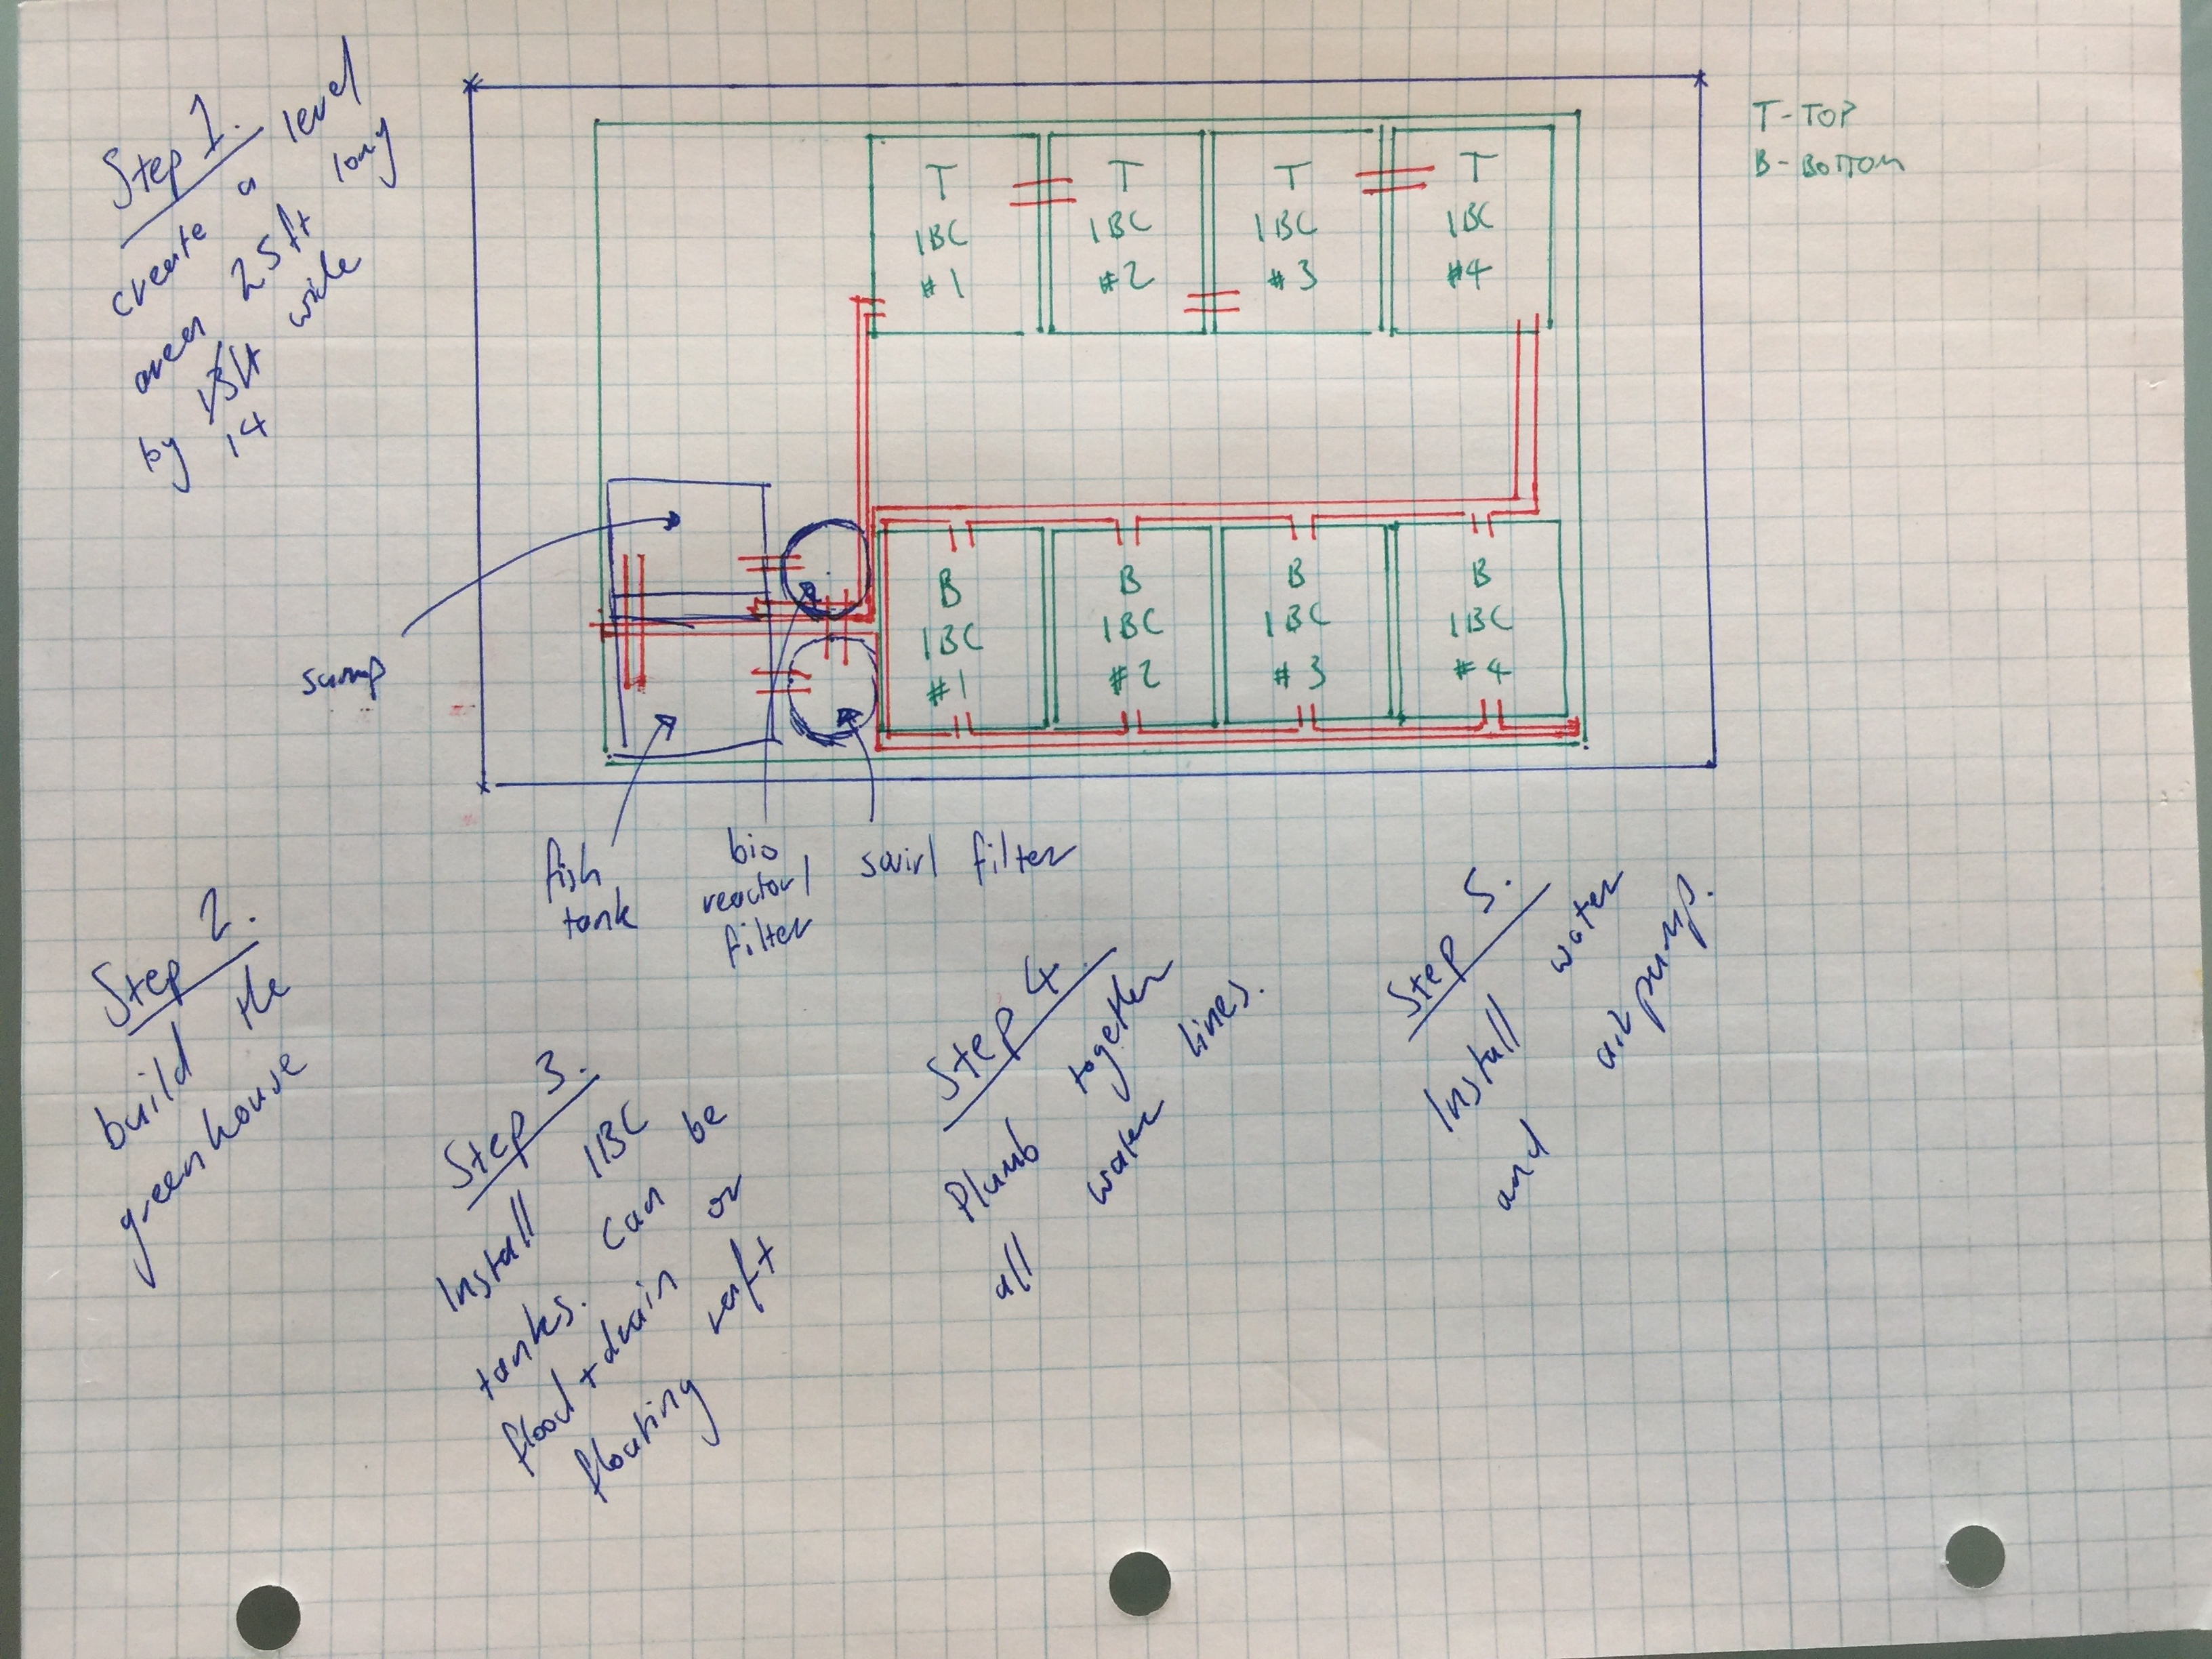 Step 1.
create a level
area 25ft long
by 13ft wide
14
T - TOP
B - BOTTOM
T
IBC
#1
T
IBC
#2
T
IBC
#3
T
IBC
#4
B
IBC
#1
B
IBC
#2
B
IBC
#3
B
IBC
#4
sump
fish
tank
bio
reactor/
filter
swirl filter
Step 2.
build the
greenhouse
Step 3.
Install IBC
tanks. Can be
flood + drain or
floating raft
Step 4.
Plumb together
all water lines.
Step 5.
Install water
and air pump.